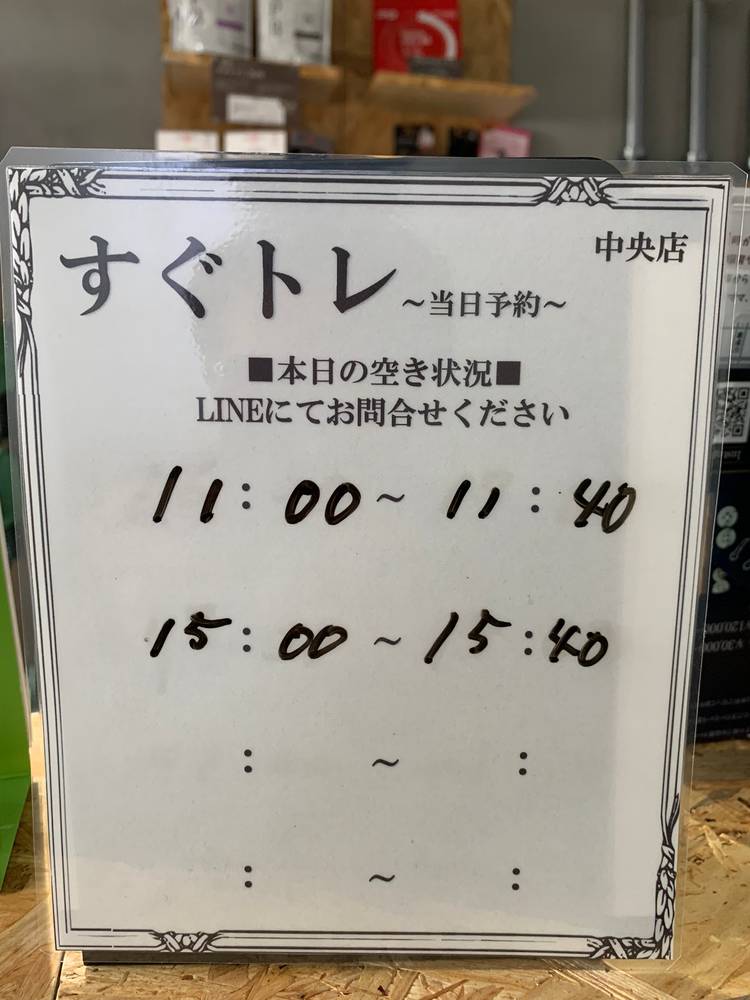 中央店
すぐトレ ～当日予約～
■本日の空き状況■
LINEにてお問合せください
11:00～11:40
15:00～15:40
: ～ :
: ～ :